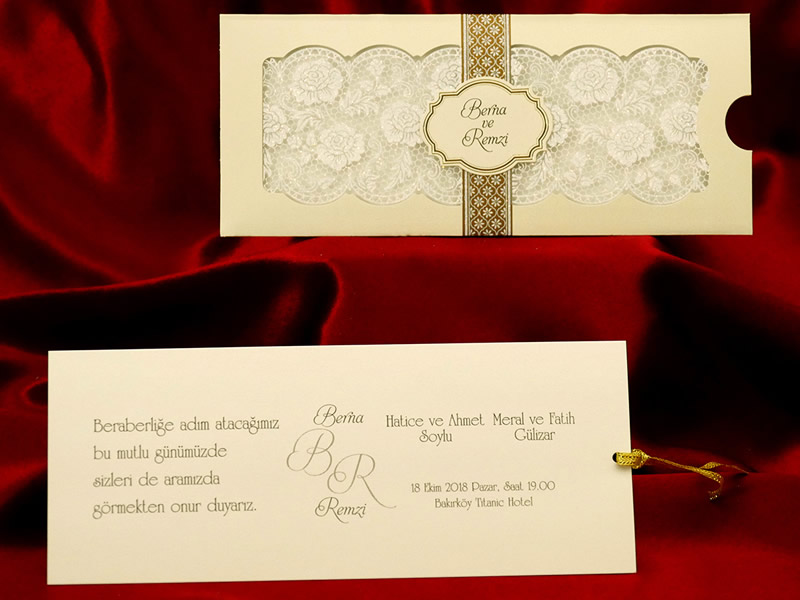 Berna
ve
Remzi
Beraberliğe adım atacağımız
bu mutlu günümüzde
sizleri de aramızda
görmekten onur duyarız.
Berna
B
R
Remzi
Hatice ve Ahmet
Soylu
Meral ve Fatih
Gülizar
18 Ekim 2018 Pazar, Saat 19.00
Bakırköy Titanic Hotel